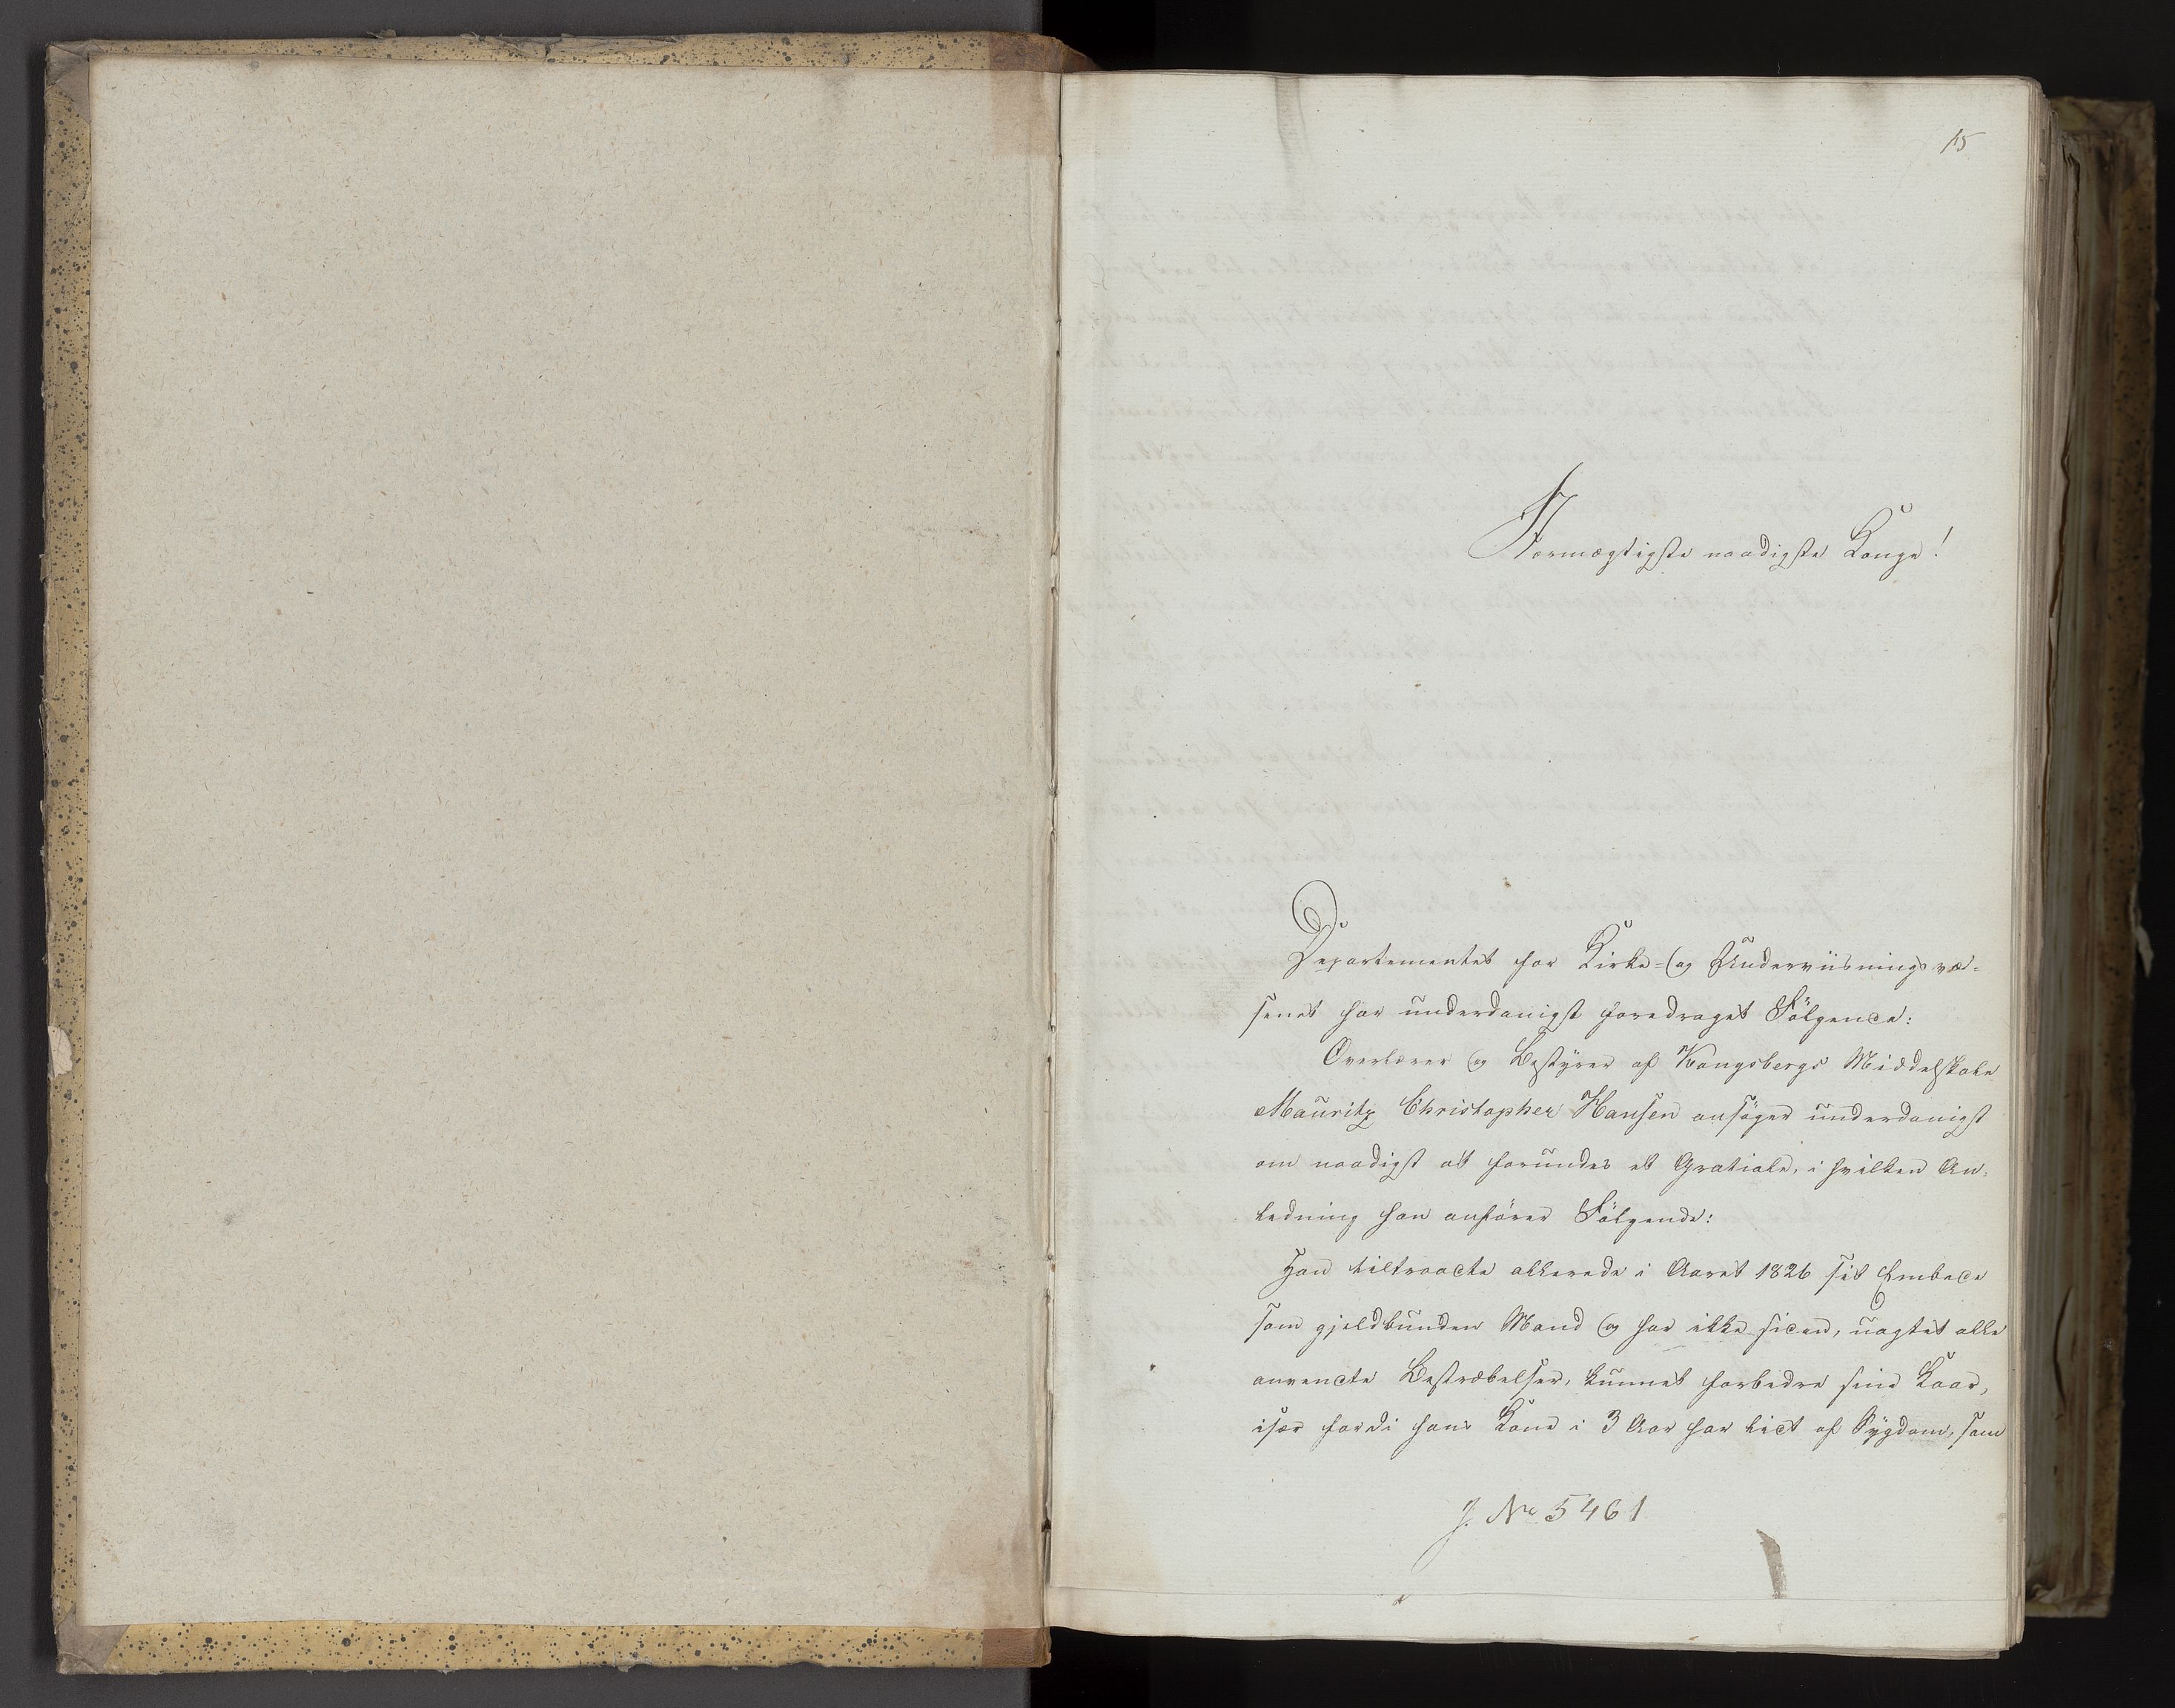 15
Stormægtigste naadigste Konge!
Departementet for Kirke- og Underviisningsvæ-
senet har underdanigst foredraget Følgende:
Overlærer og Bestyrer af Kongsbergs Middelskole
Mauritz Christopher Hansen ansøger underdanigst
om naadigst at forundes et Gratiale, i hvilken An-
ledning han anfører Følgende:
Han tiltraadte allerede i Aaret 1826 sit Embede
som gjeldbunden Mand og har ikke siden, uagtet alle
anvendte Bestræbelser, kunnet forbedre sine Kaar,
især fordi hans Kone i 3 Aar har lidt af Sygdom, som
J. No 5461